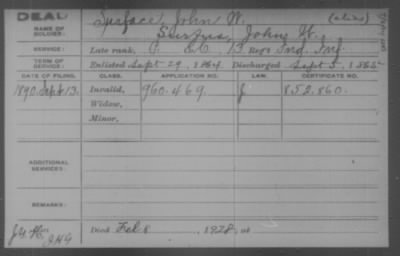 DEAD
NAME OF SOLDIER: Surface, John W. (alias)
Surfus, John W.
SERVICE: Late rank, P. Co. , 13 Reg't Ind. Inf.
TERM OF SERVICE: Enlisted Sept 29, 1864 Discharged Sept 5, 1865
DATE OF FILING. CLASS. APPLICATION NO. LAW. CERTIFICATE NO.
1890. Sept 13. Invalid, 960.469. J 852.860.
Widow,
Minor,
ADDITIONAL SERVICES:
REMARKS:
Died Feb 8, 1928, at